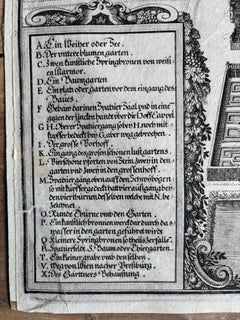 A. Ein Weiher oder See.
B. Der untere blumen garten.
C. Zwen künstliche Springbronen von weiß
en Marmor.
D. Ein Baumgarten
E. Ein platz oder garten vor dem eingang des
Baues.
F. Gebäw darinen Spatzier Saal und in eine
gegen der linden hand ober die Hoff Cappel
G. H. Oberer Spatziergang so ber H. noch mit
kupffer gedeckt bey G. aber weg gebrochen
I. Der grosse Vorhoff
K. Ein gang des grossen schönen lustgartens
L. Vier schöne pforten von Stein, zwen in den
garten und zwen in den grossen hoff.
M. Spatziergang oben auff den Schwibogen
so mit kupffer gedeckt hat vier außgang bey
den vier thurnen deß selben welche mit N. be
zeichnet.
O. Runde Thürne umb den Garten.
P. Ein künstlich bronnen werck dardurch das
wasser in den garten geführt würde
Q. Kleinere Springbronen so theils zerfalle.
R. Spatzierfeldt. S. Baum oder Thiergarten.
T. Ein kleiner grabe umb den selben
V. Weg von Wien nacher Presburg.
X. Des Gärtners Behausung.